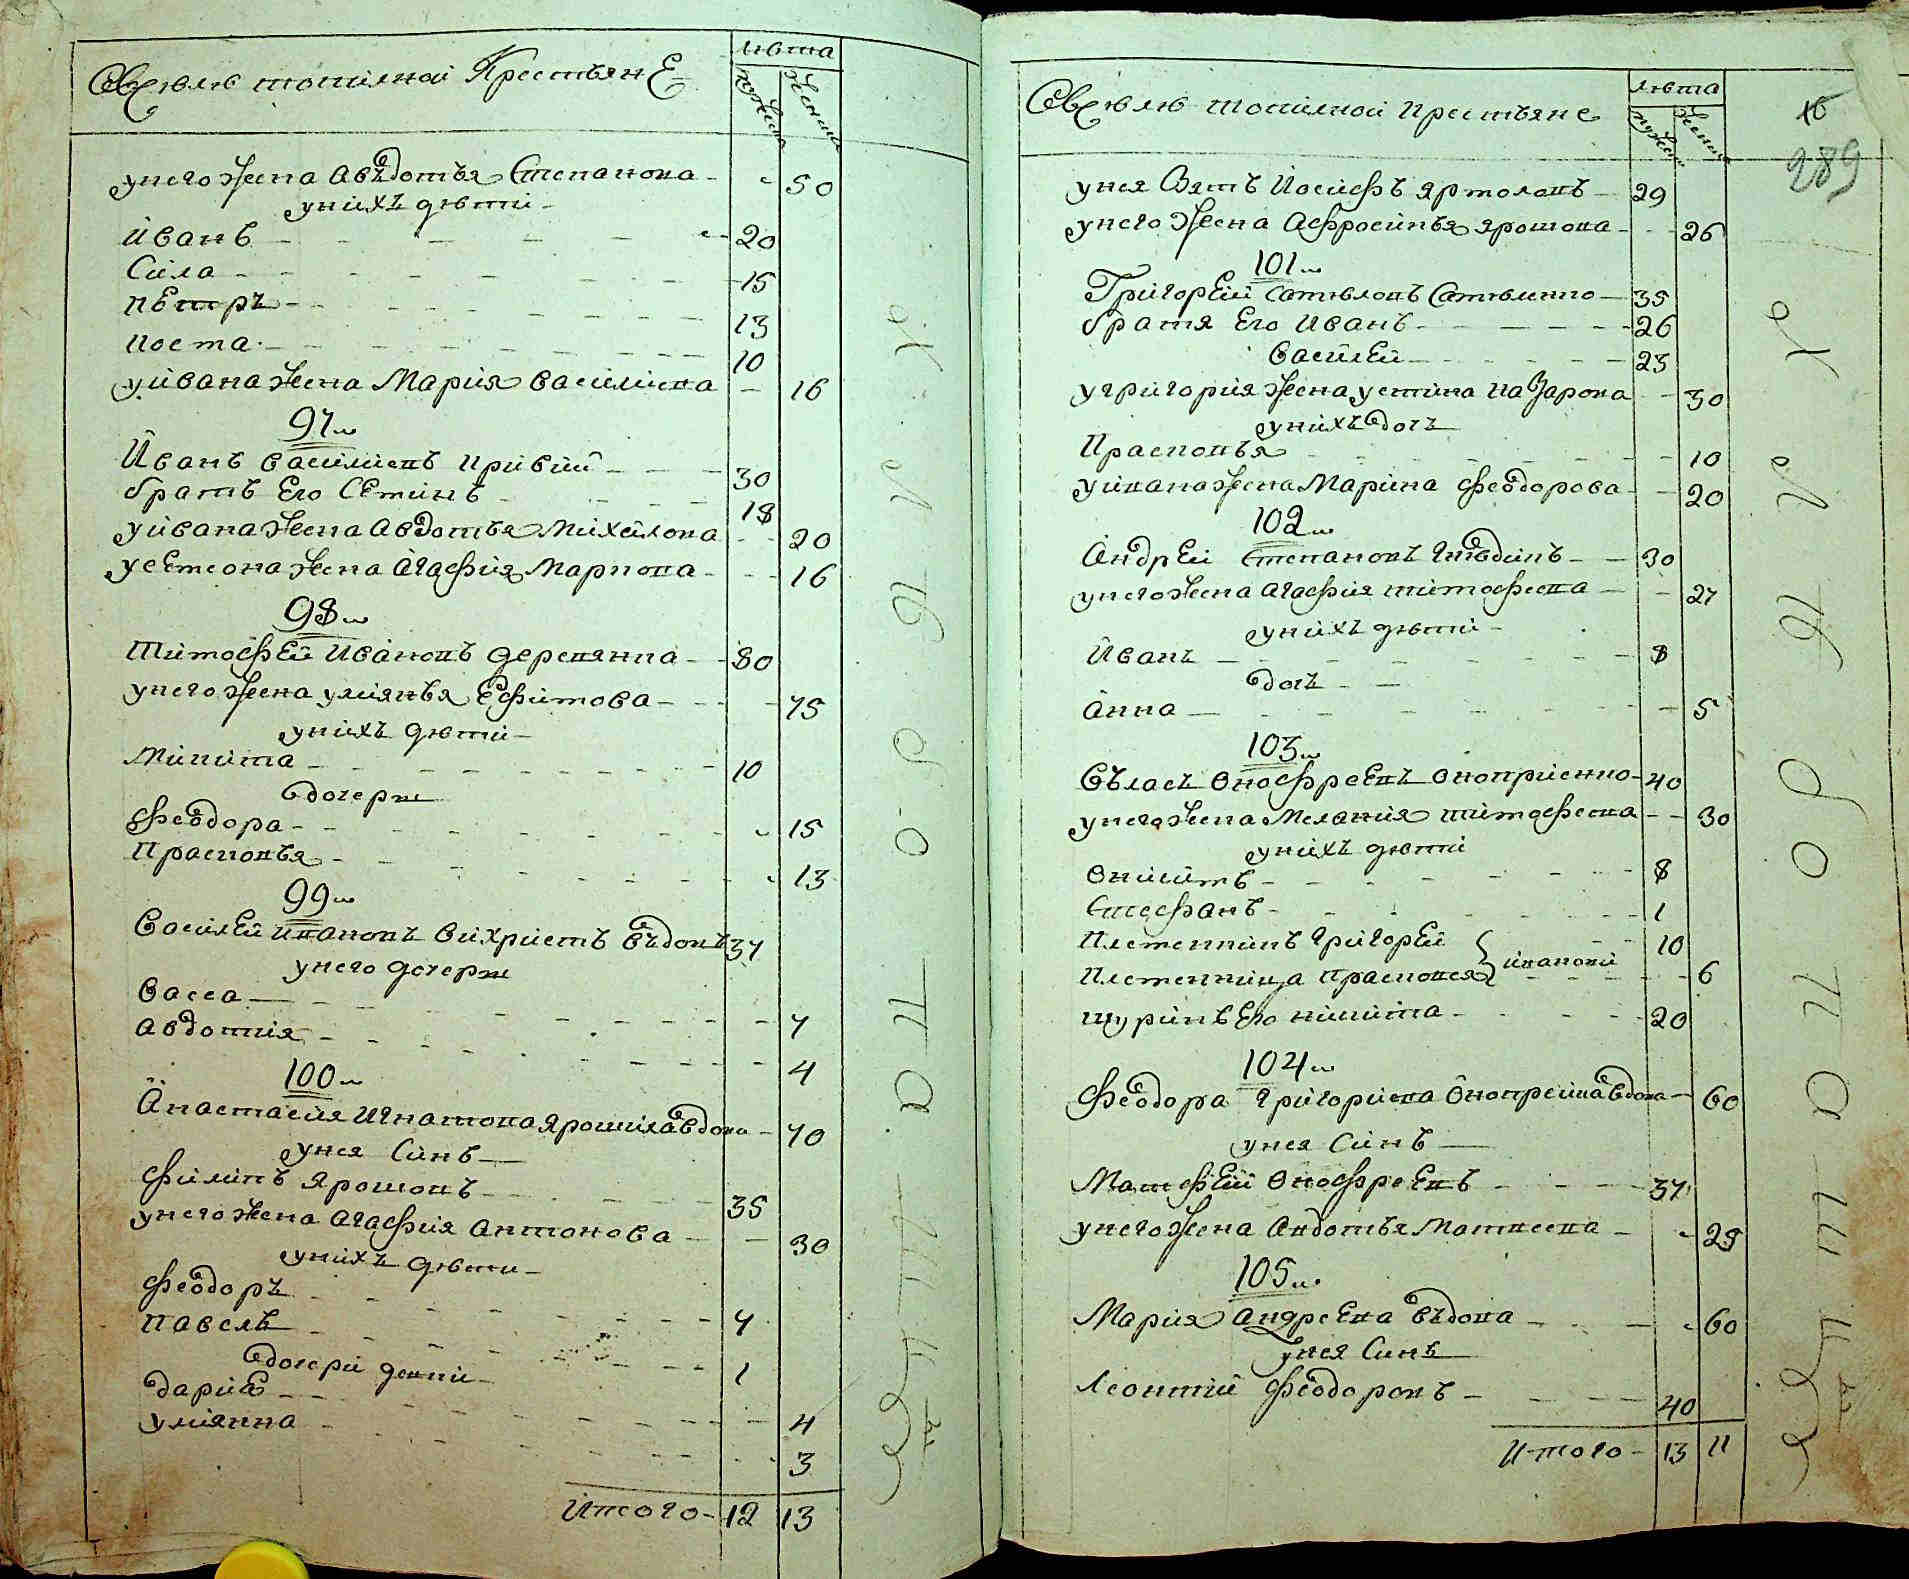 Крестьяне
лѣта
мужеска
женска
у него жена Авъдотъя Степанова 50
у нихъ дѣти
Иванъ 20
Сила 15
Петръ 13
10
у Ивана жена Мария Василиева 16
97
Иванъ Василиевъ Кривий 30
братъ Его Семинъ 18
у Ивана жена Авдотъя Михаилова 20
у Семеона жена Агафия Маркова 16
98
Тимофей Ивановъ деревянка 80
у него жена Улиянъя Ефимова 75
у нихъ дѣти
Микита 10
дочери
Феодора 15
Прасковъя 13
99
Василей Ивановъ въдовъ 37
у него дочери
Васса 7
Авдотия 4
100
Анастасия Игнатова въдова 70
у нея Синъ
Филипъ Ярошовъ 35
у него жена Агафия Антонова 30
у нихъ дѣти
Феодоръ 7
Павелъ 1
дочери
Дария 4
Улиянна 3
Итого 12 13
Крестьяне
лѣта
мужеска
женска
289
у нея Зять Иосифъ 29
у него жена Афросинъя Ярошова 26
101
Григорей 35
братя Его Иванъ 26
Василей 23
у Григория жена Устина Назарова 30
у нихъ дочъ
Прасковъя 10
у Ивана жена Марина Феодорова 20
102
Андрей Степановъ 30
у него жена Агафия Тимофеева 27
у нихъ дѣти
Иванъ 8
дочъ
Анна 5
103
Въласъ Онофреевъ Оноприенко 40
у него жена Мелания Тимофеева 30
у нихъ дѣти
Онисимъ 8
Стефанъ 1
Племенникъ Григорей 10
Племенница Прасковея Ивановы 6
шуринъ Его Никита 20
104
Феодора Григориева въдова 60
у нея Синъ
Матфей Онофреевъ 37
у него жена Авдотъя Матвеева 29
105
Мария Андреева въдова 60
у нея Синъ
Леонтий Феодоровъ 40
Итого 13 11